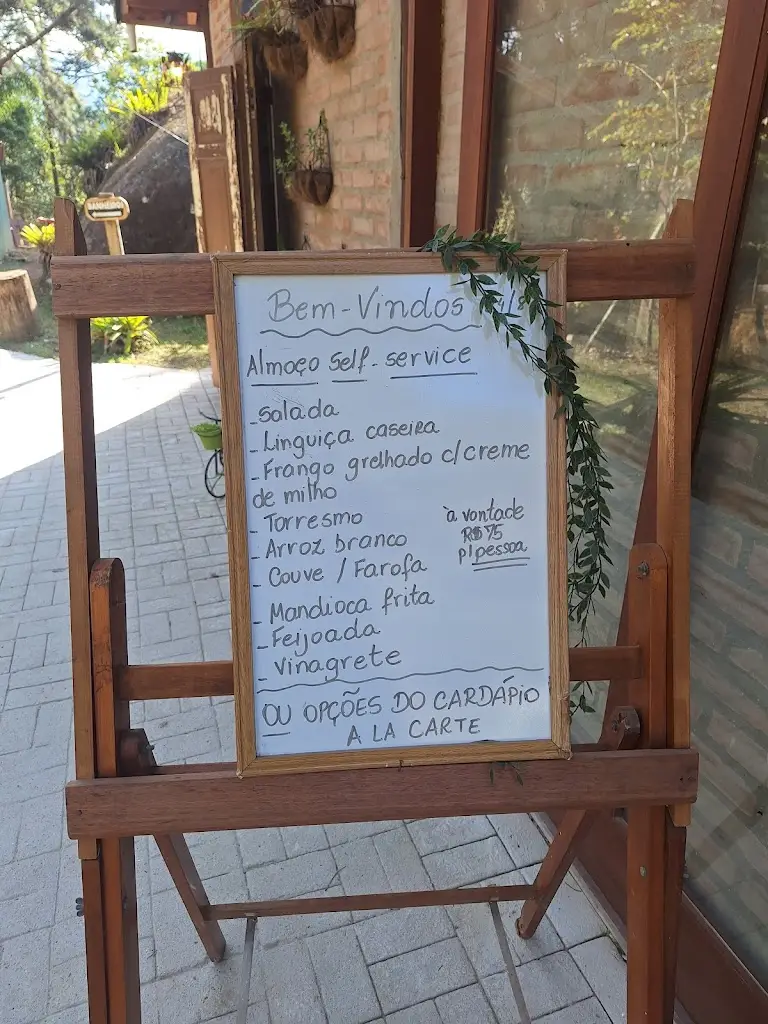 Bem-Vindos
Almoço Self-service
- Salada
- Linguiça caseira
- Frango grelhado c/creme
de milho
- Torresmo
- Arroz branco
- Couve / Farofa
- Mandioca frita
- Feijoada
- Vinagrete
à vontade
R$75
p/pessoa
OU OPÇÕES DO CARDÁPIO
A LA CARTE